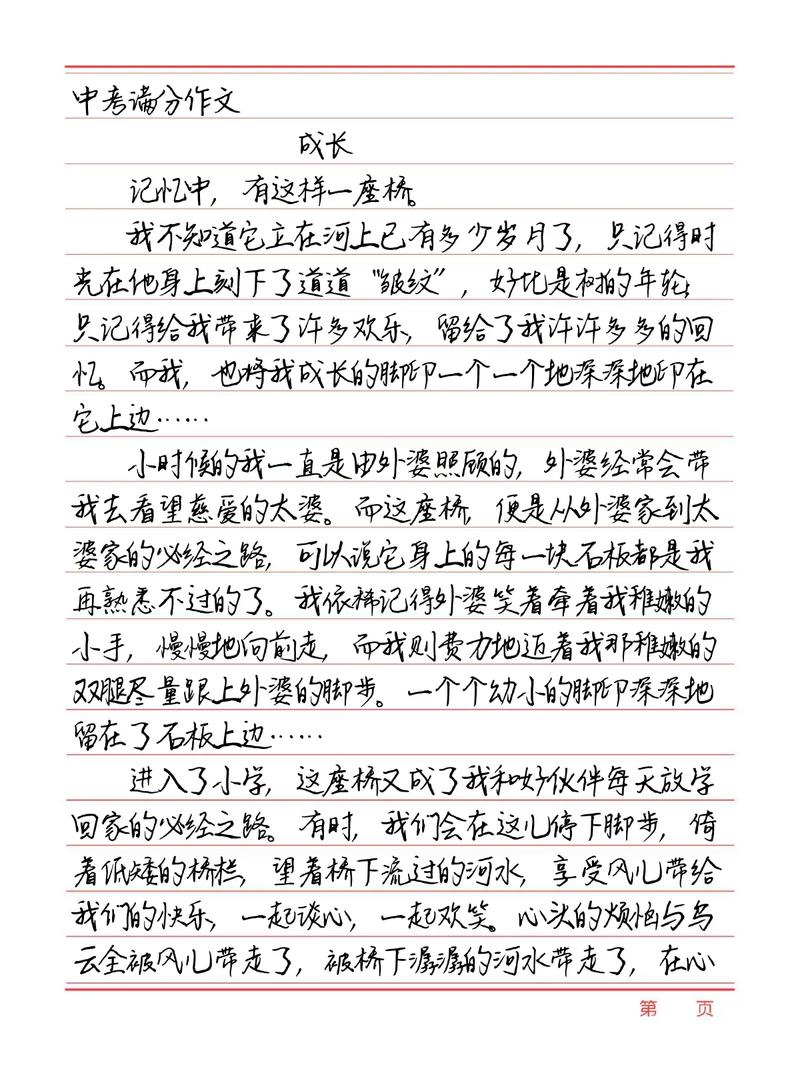 中考满分作文
成长
记忆中，有这样一座桥。
我不知道它立在河上已有多少岁月了，只记得时
光在他身上刻下了道道“皱纹”，好比是树的年轮；
只记得给我带来了许多欢乐，留给了我许许多多的回
忆。而我，也将我成长的脚印一个一个地深深地印在
它上边……
小时候的我一直是由外婆照顾的，外婆经常会带
我去看望慈爱的太婆。而这座桥，便是从外婆家到太
婆家的必经之路，可以说它身上的每一块石板都是我
再熟悉不过的了。我依稀记得外婆笑着牵着我稚嫩的
小手，慢慢地向前走，而我则费力地迈着我那稚嫩的
双腿尽量跟上外婆的脚步。一个个幼小的脚印深深地
留在了石板上边……
进入了小学，这座桥又成了我和好伙伴每天放学
回家的必经之路。有时，我们会在这儿停下脚步，倚
着低矮的桥栏，望着桥下流过的河水，享受风儿带给
我们的快乐，一起谈心，一起欢笑。心头的烦恼与乌
云全被风儿带走了，被桥下潺潺的河水带走了，在心
第 页